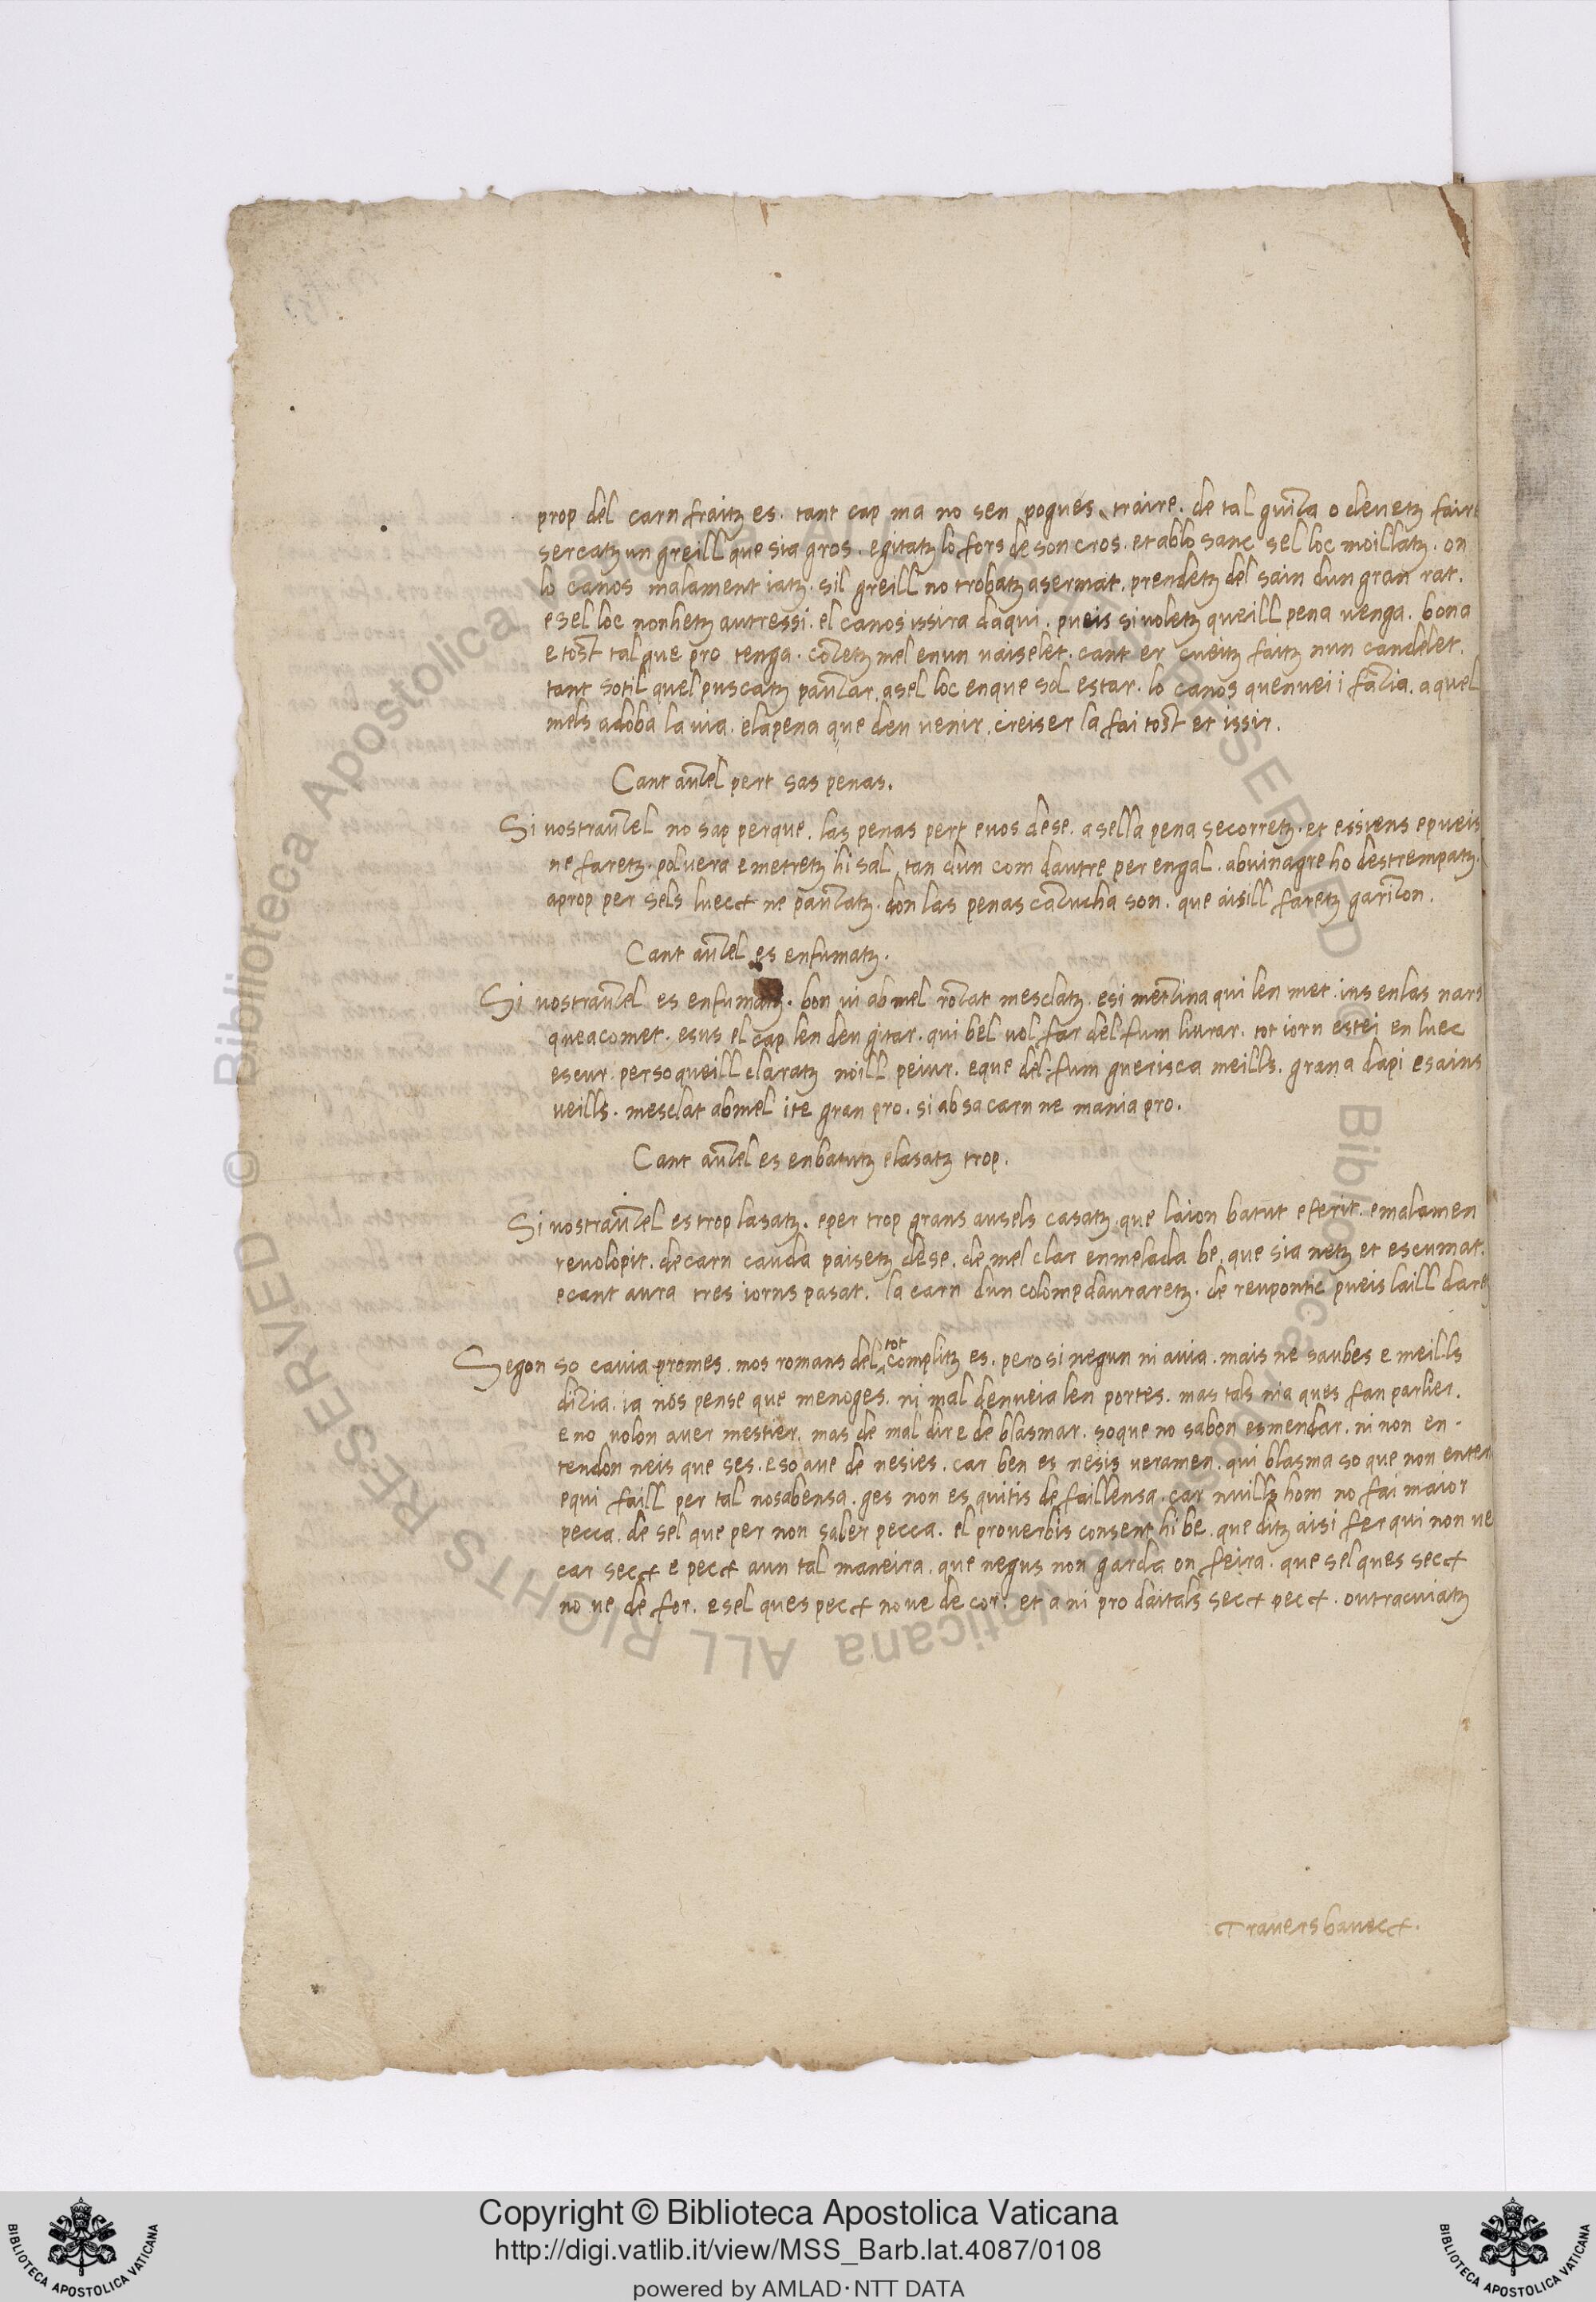 prop del carn fraitz es. tant cap ma no sen pogues traire. de tal guiza o deuetz faire
sercatz un greill que sia gros. egitatz lo fors de son cros. et ablo sanc sel loc moillatz. on
lo canos malament iatz. sil greill no trobatz asermat. prendetz del sain dun gran rat.
esel loc nonhetz autressi. el canos issira daqui. pueis si uoletz queill pena uenga. bona
e tost tal que pro tenga. metetz mel enun uaiselet. cant er cueitz faitz nun candelet.
tant sotil quel puscatz pauzar. asel loc enque sol estar. lo canos quenuei i fazia. aquel
mels adoba la uia. elapena que deu uenir. creiser la fai tost et issir.
Cant auzel pert sas penas.
Si uostrauzel no sap perque. las penas pert euos dese. asella pena secorretz. et essiens epueis
ne faretz. poluera emetretz hi sal. tan dun com dautre per engal. abuinagre ho destrempatz.
aprop per sels luect ne pauzatz. don las penas cazucha son. que aisill faretz garizon.
Cant auzel es enfumatz.
Si uostrauzel es enfumatz. bon ui ab mel rozat mesclatz. esi metzina qui len met. ins enlas nars
queacomet. esus el cap len deu gitar. qui bel uol far del fum liurar. tot iorn estei en luec
escur. persoqueill claratz noill peiur. eque del fum guerisca meills. grana dapi esains
ueills. mesclat abmel ite gran pro. si absacarn ne mania pro.
Cant auzel es enbatutz elasatz trop.
Si uostrauzel es trop lasatz. eper trop grans ausels casatz. que laion batut eferit. emalamen
reuolopit. decarn cauda paisetz dese. de mel clar enmelada be. que sia netz et escumat.
ecant aura tres iorns pasat. la carn dun colomp dauraretz. de reupontic pueis laill daretz
Segon so cauia promes. mos romans del tot complitz es. pero si negun ni auia. mais ne saubes e meills
dizia. ia nos pense que menoges. ni mal denueia len portes. mas tals nia ques fan parlier.
e no uolon auer mestier. mas de mal dir e de blasmar. soque no sabon esmendar. ni non en-
tendon neis que ses. eso aue de nesies. car ben es nesis ueramen. qui blasma so que non enten
equi faill per tal nosabensa. ges non es quitis de faillensa. car nuills hom no fai maior
pecca. de sel que per non saber pecca. el prouerbis consent hi be. que ditz aisi fer qui non ue
car sect e pect aun tal maneira. que negus non garda on feira. que sel ques sect
no ue de for. esel ques pect noue de cor. et a ni pro daitals sect pect. outracuiatz
Trauersbauect.
Copyright © Biblioteca Apostolica Vaticana
http://digi.vatlib.it/view/MSS_Barb.lat.4087/0108
powered by AMLAD·NTT DATA
BIBLIOTECA APOSTOLICA VATICANA
BIBLIOTECA APOSTOLICA VATICANA
© Biblioteca Apostolica Vaticana ALL RIGHTS RESERVED
© Biblioteca Apostolica Vaticana ALL RIGHTS RESERVED